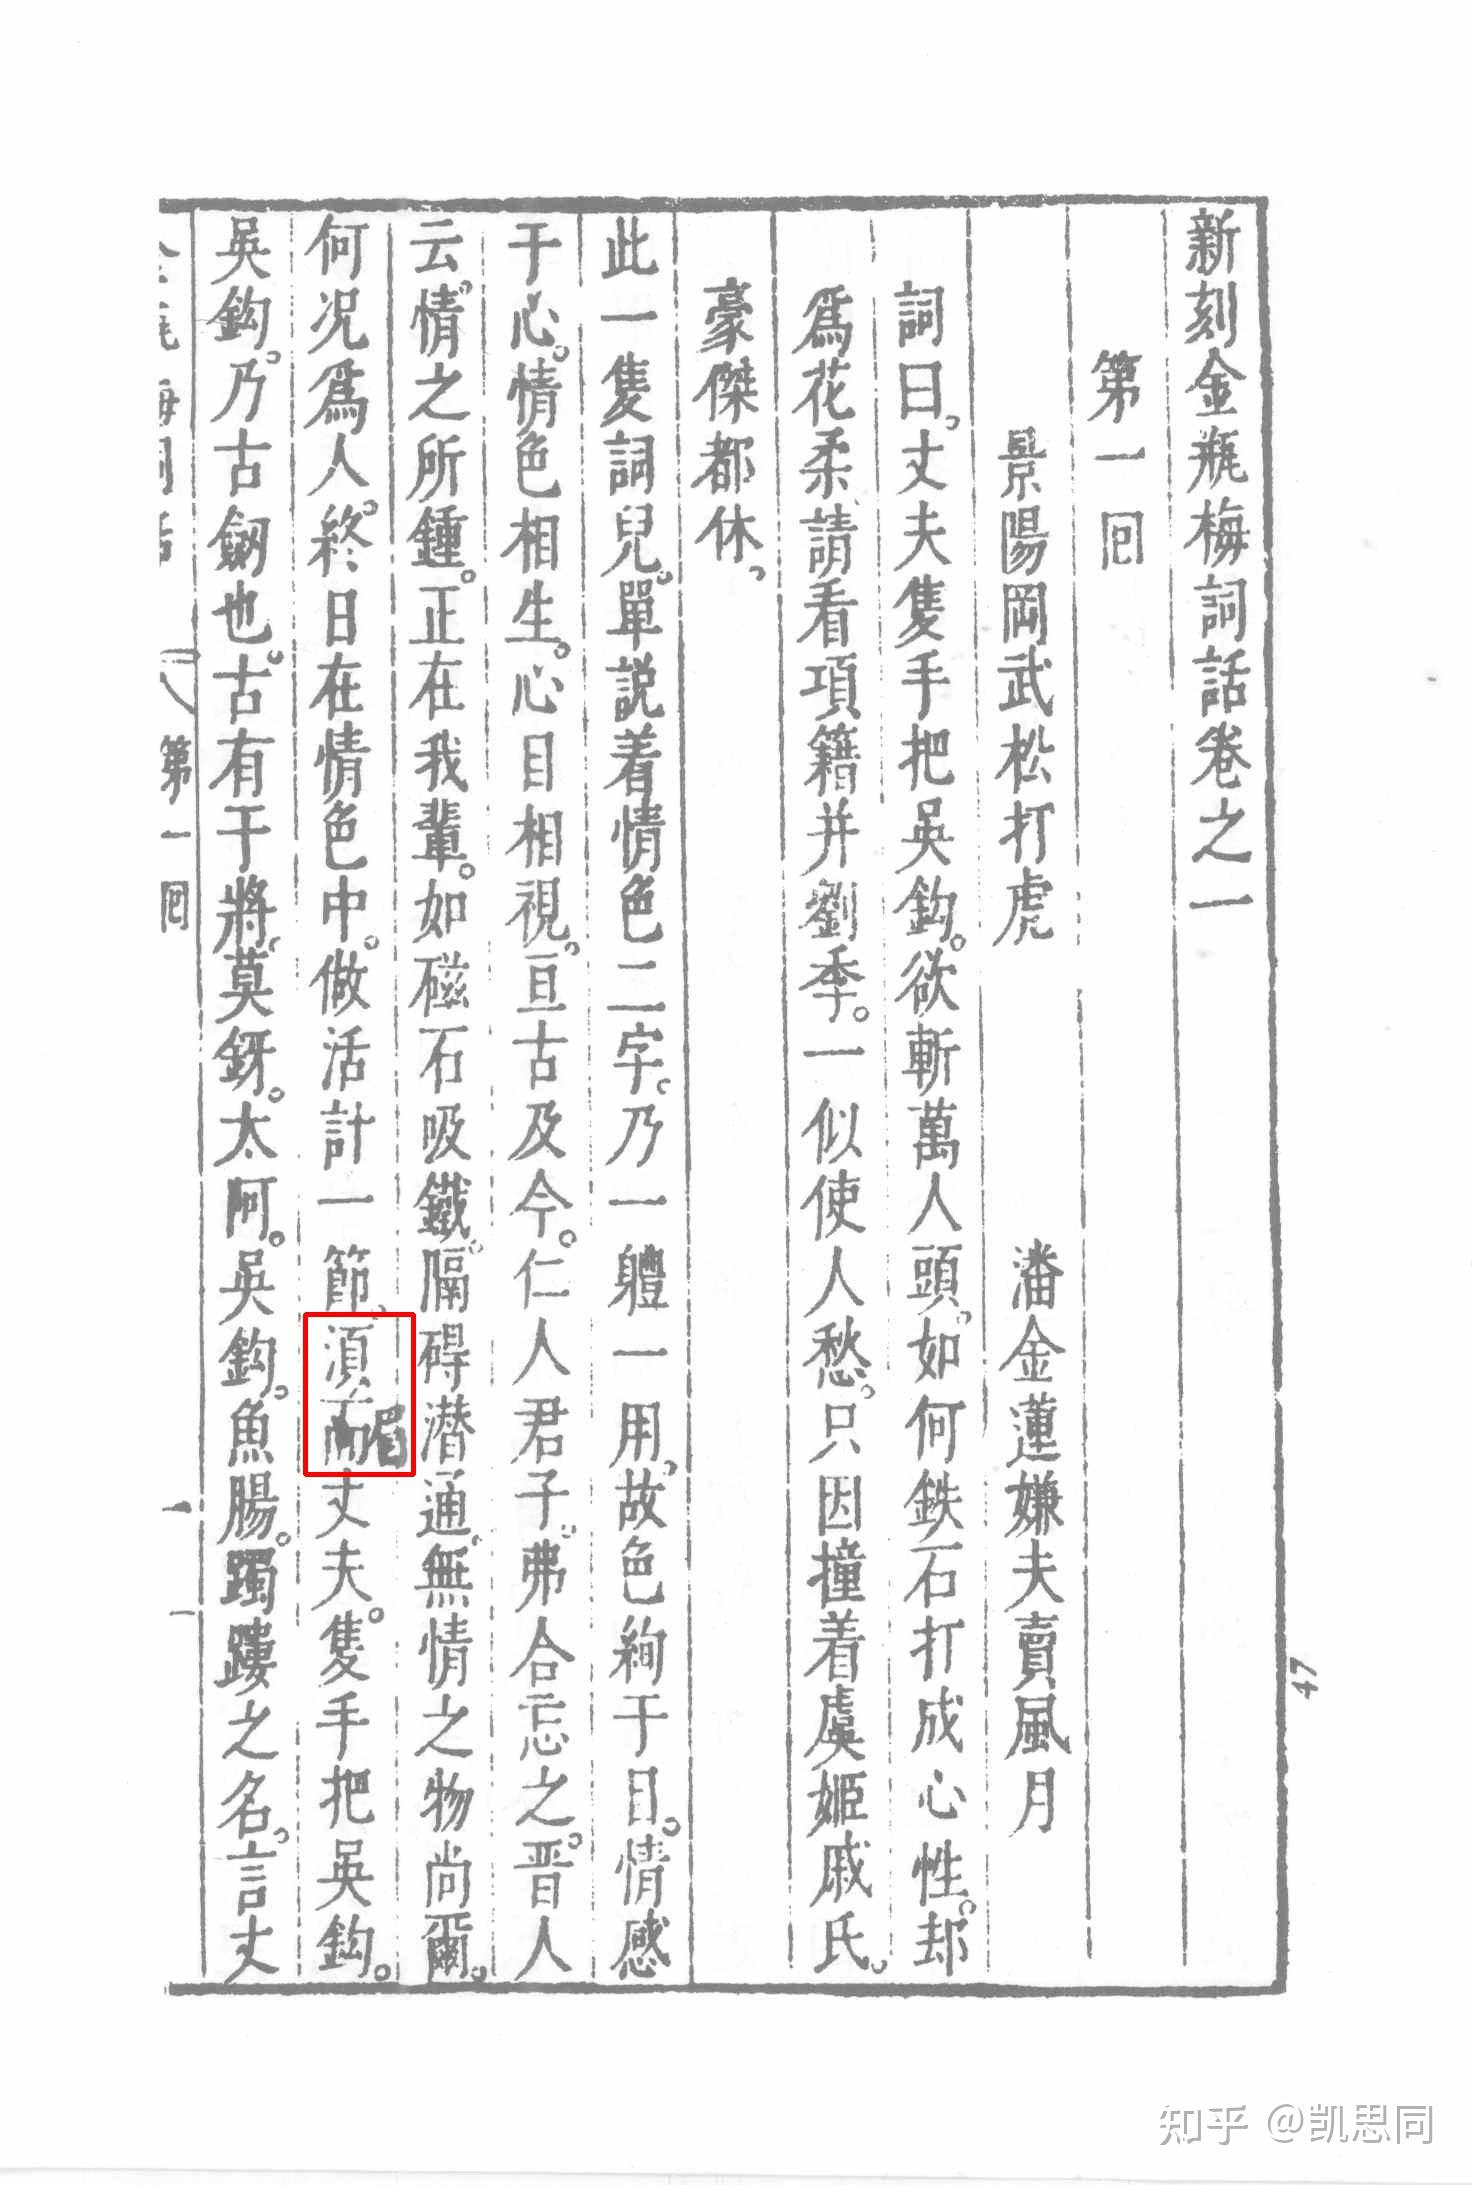 新刻金瓶梅詞話卷之一
第一回
景陽岡武松打虎　潘金蓮嫌夫賣風月
詞曰丈夫隻手把吳鈎。欲斬萬人頭。如何鉄石打成心性。却
爲花柔請看項籍并劉季。一似使人愁。只因撞着虞姬戚氏。
豪傑都休。
此一隻詞兒。單説着情色二字。乃一體一用。故色絢于目。情感
于心。情色相生。心目相視。亘古及今。仁人君子。弗合忘之。晋人
云。情之所鍾。正在我輩。如磁石吸鐵。隔碍潜通。無情之物尚爾。
何况爲人。終日在情色中。做活計一節。須而丈夫。隻手把吳鈎。
吳鈎。乃古劔也。古有干將。莫釾。太阿。吳鈎。魚腸。躅鏤之名。言丈
第一回
一
47
知乎 @凯思同